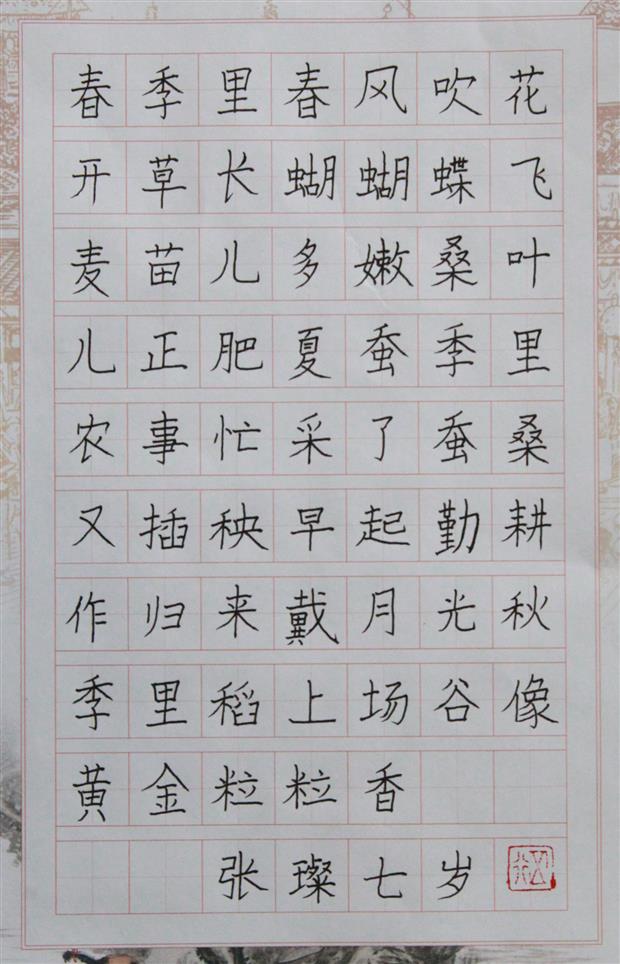 春季里春风吹花
开草长蝴蝴蝶飞
麦苗儿多嫩桑叶
儿正肥夏蚕季里
农事忙采了蚕桑
又插秧早起勤耕
作归来戴月光秋
季里稻上场谷像
黄金粒粒香
张璨七岁